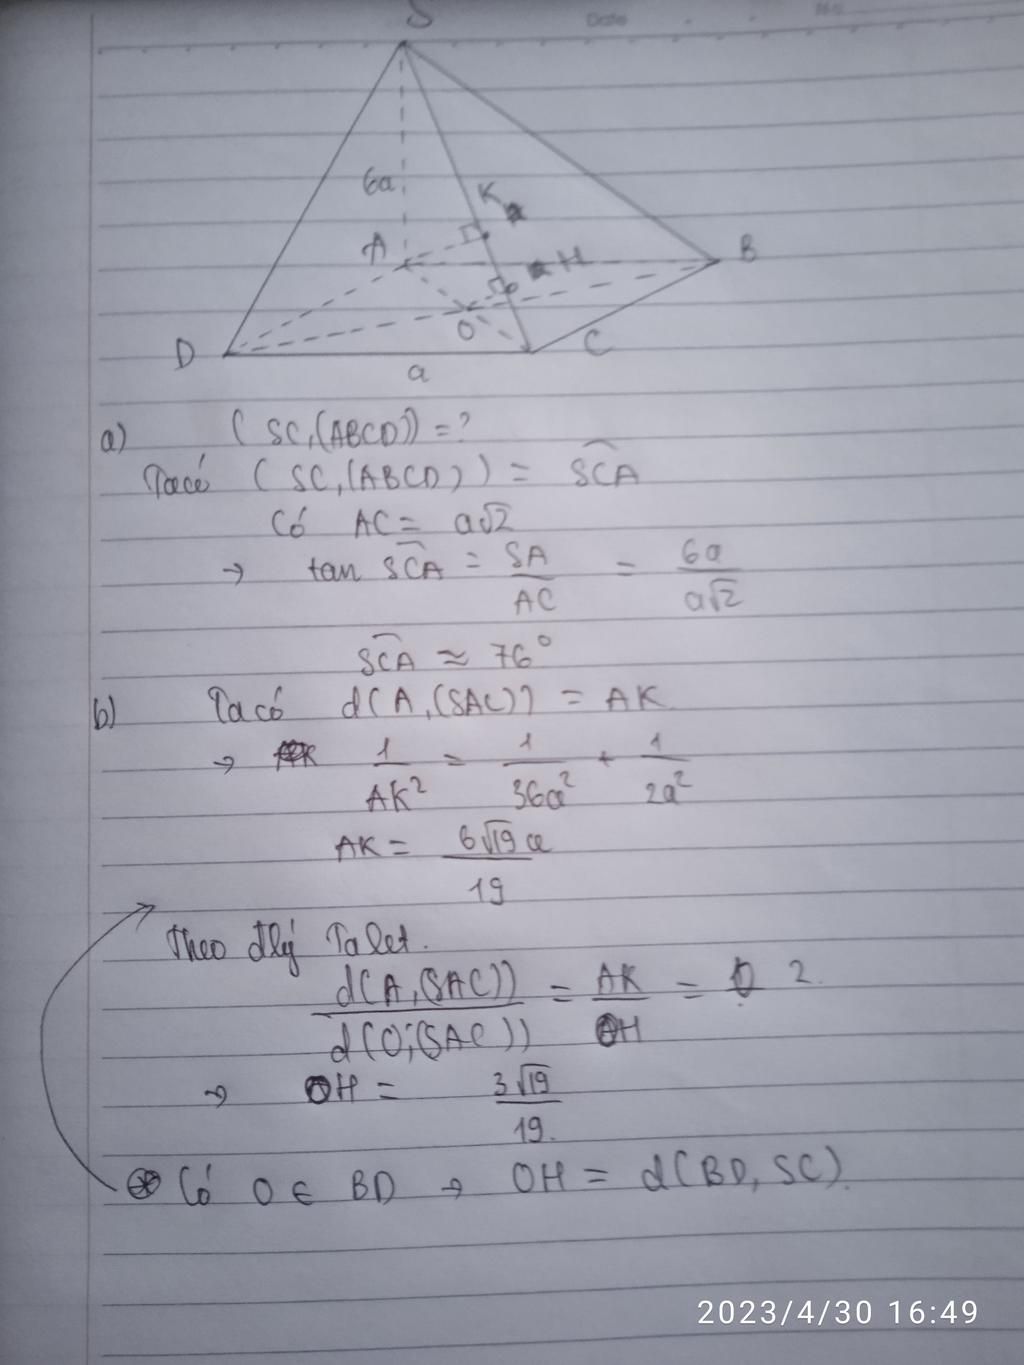 S
Date
No
6a
K
A
H
B
O
D
C
a
a) ( SC, (ABCD)) = ?
Ta có ( SC, (ABCD)) = SCA
Có AC = a√2
→ tan SCA = SA/AC = 6a/a√2
SCA ≈ 76°
b) Ta có d(A, (SAC)) = AK
→ 1/AK² = 1/36a² + 1/2a²
AK = 6√19 a/19
Theo đlý Talet.
d(A, (SAC))/d(O; (SAC)) = AK/OH = 2.
→ OH = 3√19/19.
Có O ∈ BD → OH = d(BD, SC).
2023/4/30 16:49